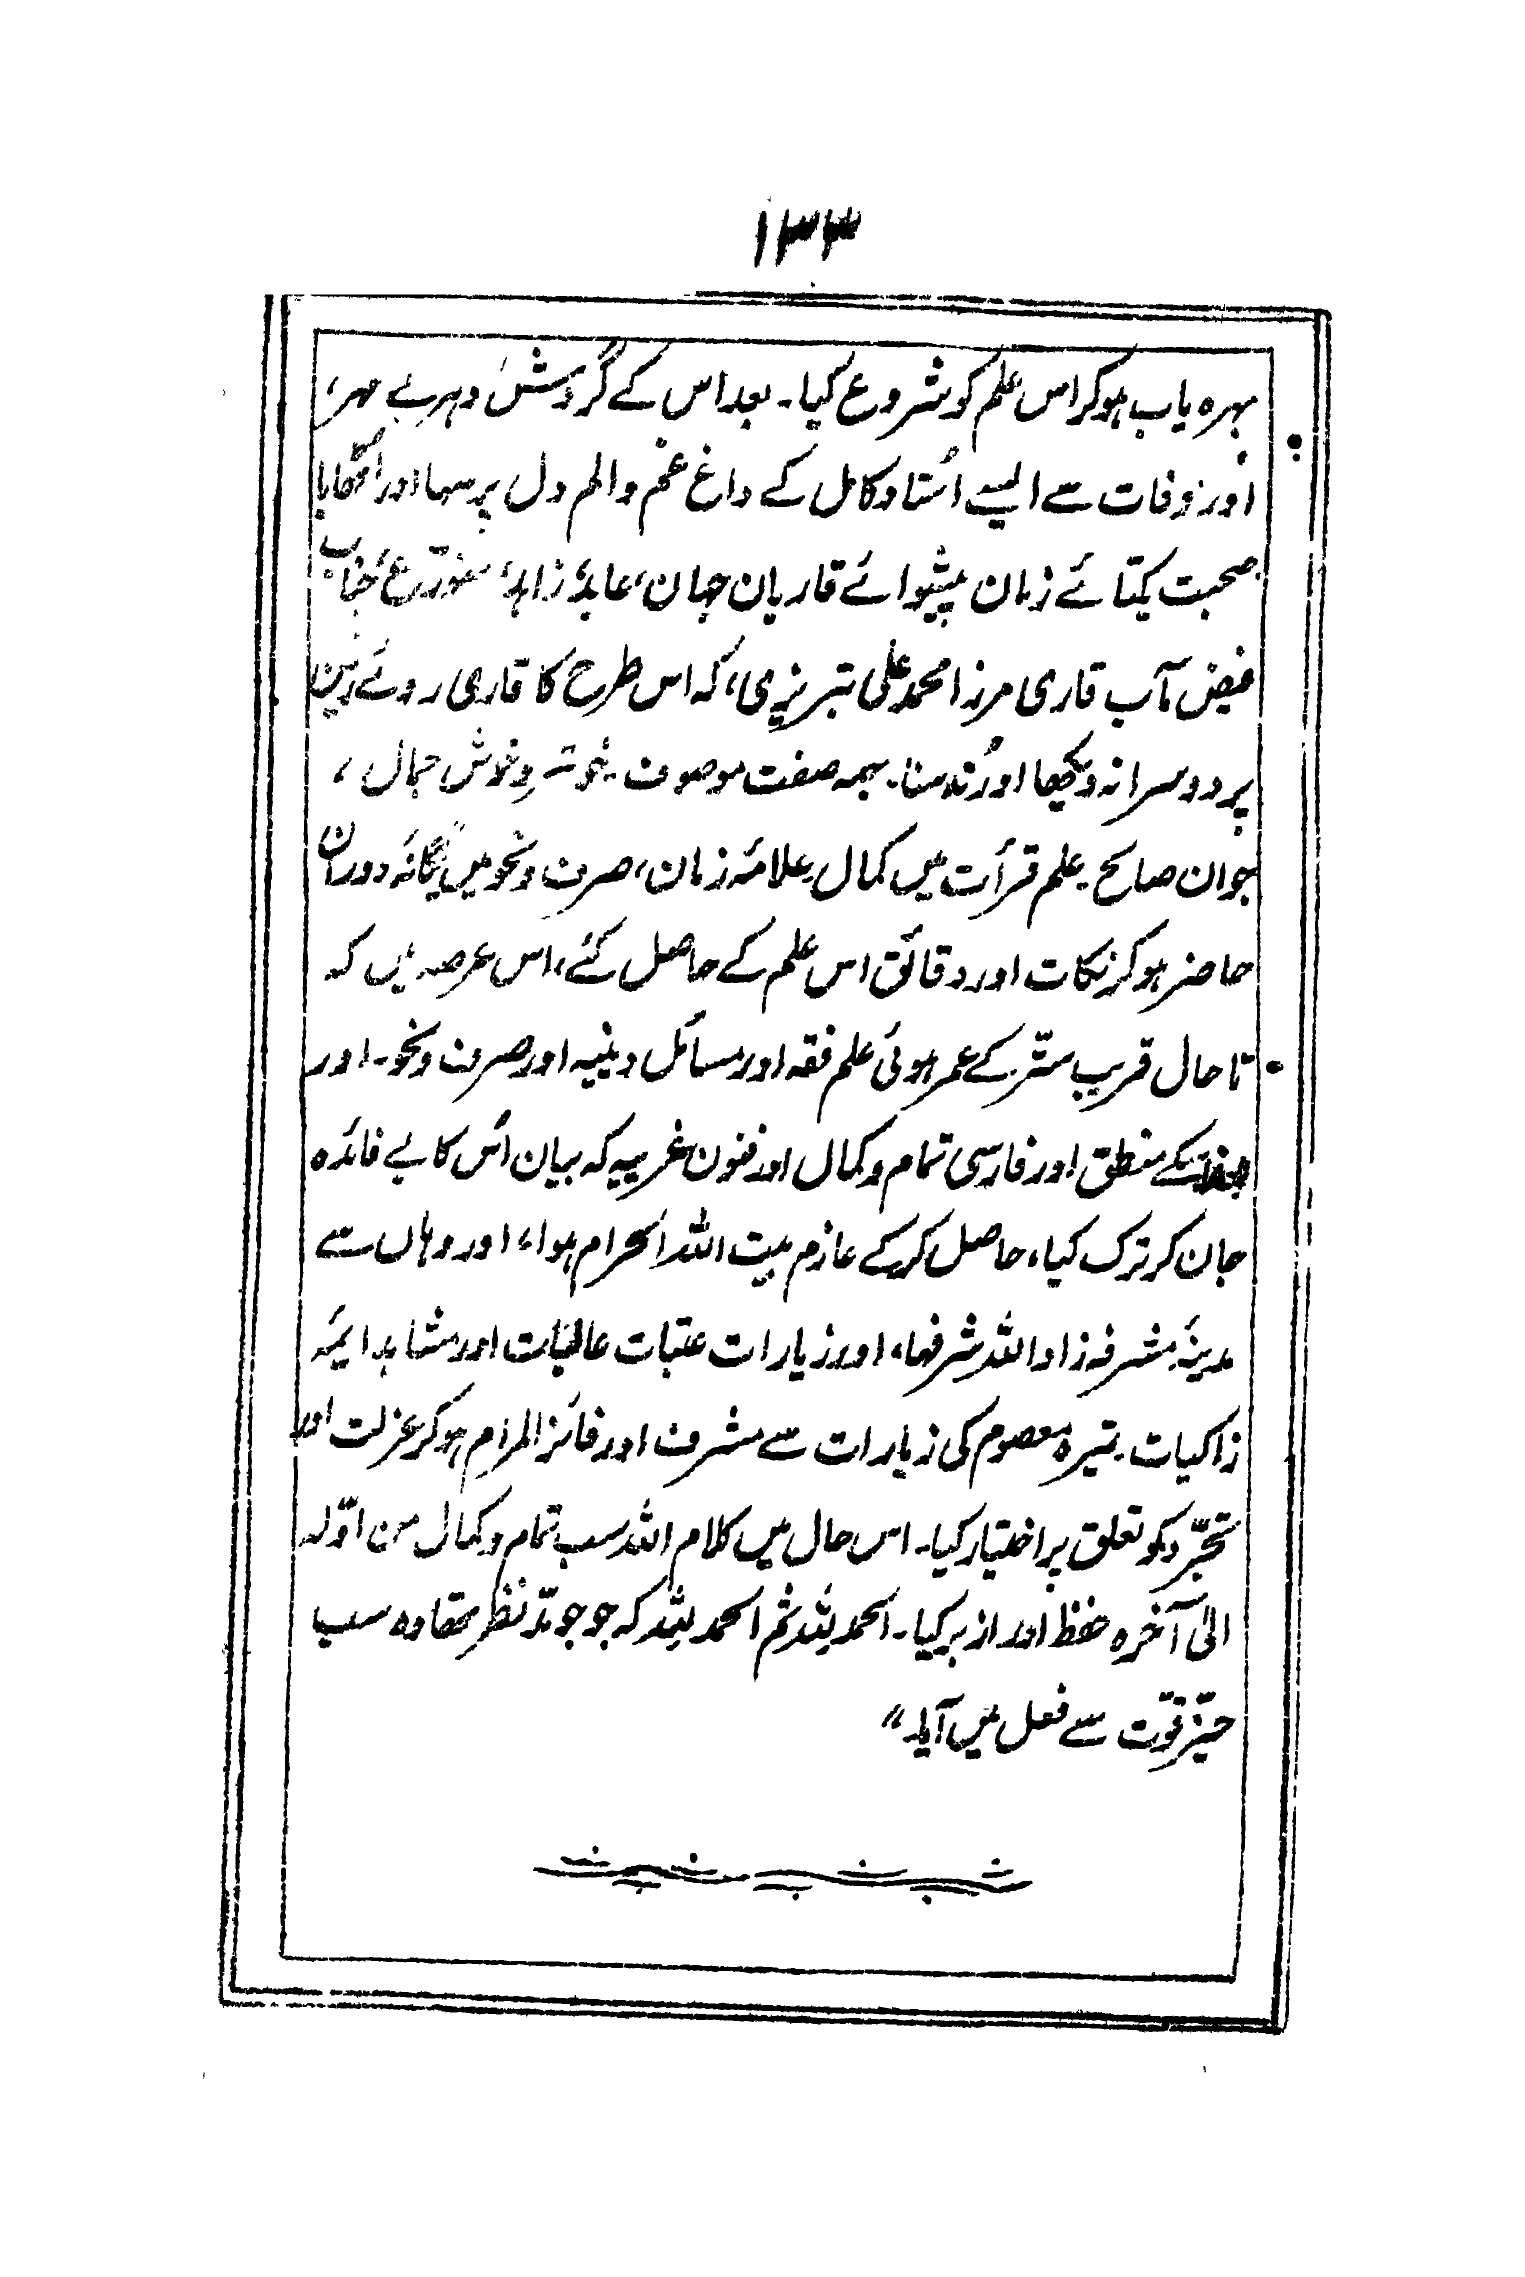 ۱۳۳
بہرہ یاب ہوکر اس علم کو شروع کیا۔ بعد اس کے گردش دہر بے مہر،
اور وفات سے ایسے اُستاد کامل کے داغ غم و الم دل پر سہا اور
صحبت یکتائے زمان پیشوائے قاریان جہان، عابد، زاہد، متورّع، جناب
فیض مآب قاری مرزا محمد علی تبریزی، کہ اس طرح کا قاری روئے زمین
پر دوسرا نہ دیکھا اور نہ سنا۔ ہمہ صفت موصوف۔ خوش جمال،
جوان صالح۔ علم قرأت میں کمال علامۂ زمان، صرف و نحو میں یگانۂ دوران
حاضر ہوکر نکات اور دقائق اس علم کے حاصل کئے، اس عرصہ میں کہ
تا حال قریب ستّر کے عمر ہوئی علم فقہ اور مسائل دینیہ اور صرف و نحو۔ اور
منطق اور فارسی تمام و کمال اور فنون غریبہ کہ بیان اُس کا بے فائدہ
جان کر ترک کیا، حاصل کرکے عازم بیت اللہ الحرام ہوا، اور وہاں سے
مدینۂ مشرفہ زاد اللہ شرفہا، اور زیارات عتبات عالیات اور مشاہد ایمہ
زاکیات۔ تیرہ معصوم کی زیارات سے مشرف اور فائز المرام ہوکر عزلت اور
تجرّد کو تعلق پر اختیار کیا۔ اس حال میں کلام اللہ سب تمام و کمال من اوّلہ
الیٰ آخرہ حفظ اور ازبر کیا۔ الحمد للہ ثم الحمد للہ کہ جو جو مدّ نظر تھا وہ سب
حیّز قوّت سے فعل میں آیا۔"